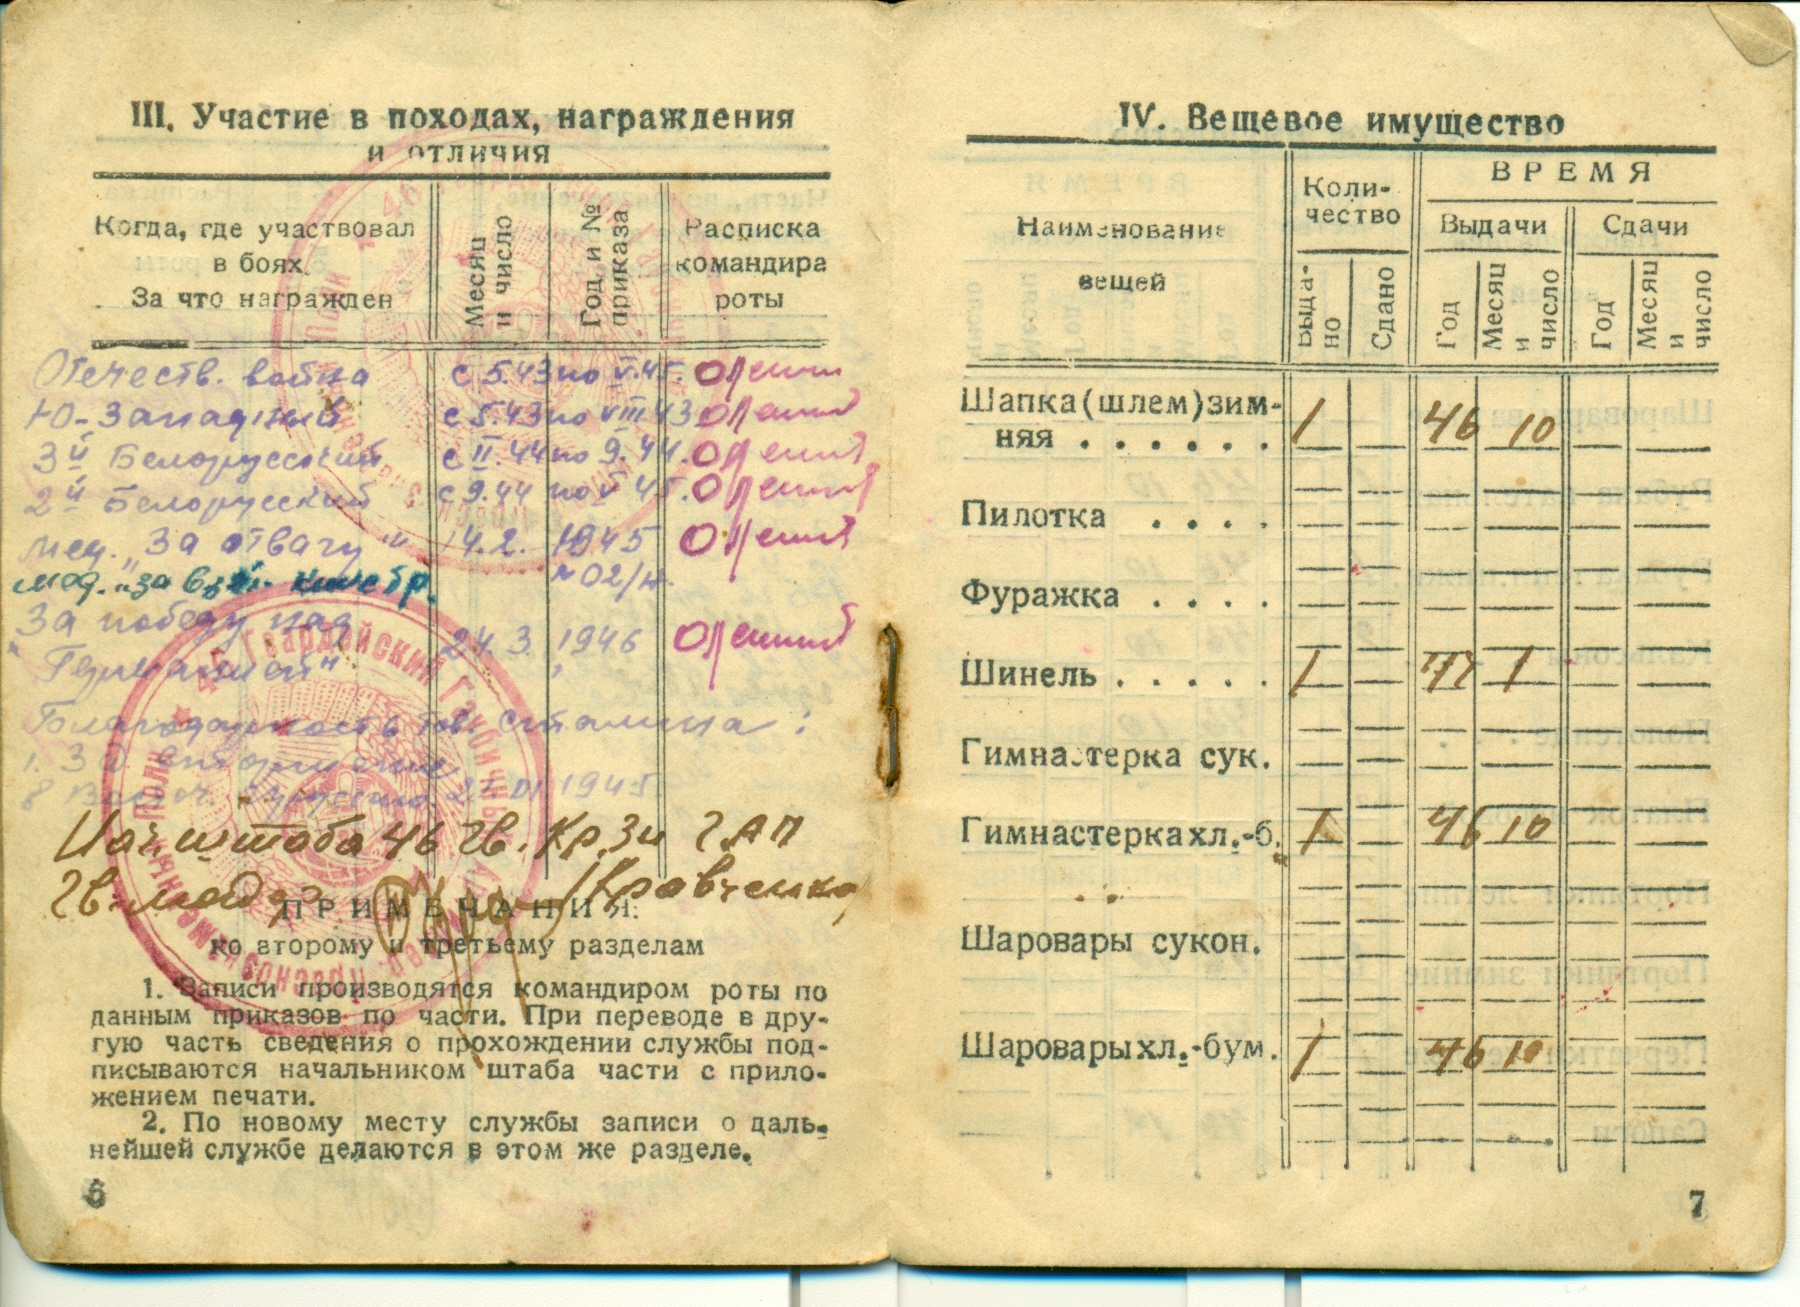 III. Участие в походах, награждения
и отличия
Когда, где участвовал
в боях.
За что награжден
Месяц
и число
Год и №
приказа
Расписка
командира
роты
Отечеств. война с 5.43 по V.45.
Ю-Западный с 5.43 по VIII 43
3й Белорусский с II.44 по 9.44.
2й Белорусский с 9.44 по V 45.
Мед. „За отвагу" 14.2. 1945
№ 02/н.
Мед. „за взят. Кинсбр.
„За победу над
Германией" 24.3. 1946
Благодарность тов. Сталина:
1. За вторжение
в Восточ. 1945
Нач штаба 46 Гв. Кр.Зн ГАП
Гв. майор /Кравченко/
46 Гвардейский Гаубичный
Полк
ПРИМЕЧАНИЯ:
ко второму и третьему разделам
1. Записи производятся командиром роты по
данным приказов по части. При переводе в дру-
гую часть сведения о прохождении службы под-
писываются начальником штаба части с прило-
жением печати.
2. По новому месту службы записи о даль-
нейшей службе делаются в этом же разделе.
6
IV. Вещевое имущество
Наименование
вещей
Коли-
чество
Выда-
но
Сдано
ВРЕМЯ
Выдачи
Сдачи
Год
Месяц
и
число
Год
Месяц
и
число
Шапка (шлем) зим-
няя . . . . . . 1 46 10
Пилотка . . . .
Фуражка . . . .
Шинель . . . . . 1 47 1
Гимнастерка сук.
Гимнастерка хл.-б. 1 46 10
Шаровары сукон.
Шаровары хл.-бум. 1 46 10
7